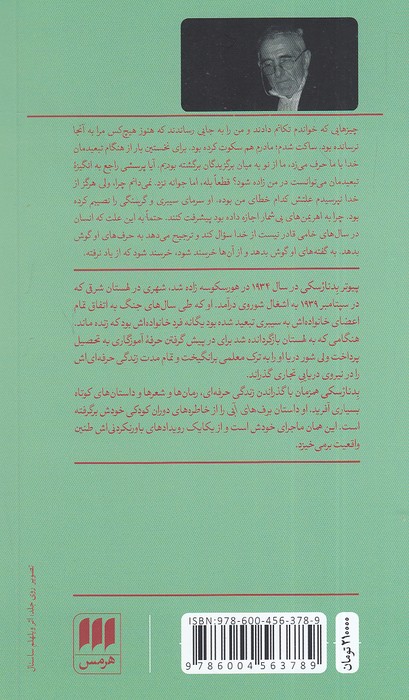 چیزهایی که خواندم تکانم دادند و من را به جایی رساندند که هنوز هیچ‌کس مرا به آنجا
نرسانده بود. ساکت شدم؛ مادرم هم سکوت کرده بود. برای نخستین بار از هنگام تبعیدمان
خدا با ما حرف می‌زد، ما از نو به میان برگزیدگان برگشته بودیم. آیا پرسشی راجع به انگیزهٔ
تبعیدمان می‌توانست در من زاده شود؟ قطعاً بله، اما جوانه نزد. نمی‌دانم چرا، ولی هرگز از
خدا نپرسیدم علتش کدام خطای من بوده. او سرمای سیبری و گرسنگی را نصیبم کرده
بود. چرا به اهریمن‌های بی‌شمار اجازه داده بود پیشرفت کنند. حتماً به این علت که انسان
در سال‌های خامی قادر نیست از خدا سؤال کند و ترجیح می‌دهد به حرف‌های او گوش
بدهد. به گفته‌های او گوش بدهد و از آن‌ها خرسند شود، خرسند شود که از یاد نرفته.
پیوتر بدنارْسکی در سال ۱۹۳۴ در هورسکوسه زاده شد، شهری در لهستان شرقی که
در سپتامبر ۱۹۳۹ به اشغال شوروی درآمد. او که طی سال‌های جنگ به اتفاق تمام
اعضای خانواده‌اش به سیبری تبعید شده بود یگانه فرد خانواده‌اش بود که زنده ماند.
هنگامی که به لهستان بازگردانده شد برای در پیش گرفتن حرفهٔ آموزگاری به تحصیل
پرداخت ولی شور دریا او را به ترک معلمی برانگیخت و تمام مدت زندگی حرفه‌ای‌اش
را در نیروی دریایی تجاری گذراند.
بدنارْسکی همزمان با گذراندن زندگی حرفه‌ای، رمان‌ها و شعرها و داستان‌های کوتاه
بسیاری آفرید. او داستان برف‌های آبی را از خاطره‌های دوران کودکی خودش برگرفته
است. این همان ماجرای خودش است و از یکایک رویدادهای باورنکردنی‌اش طنین
واقعیت برمی‌خیزد.
تصویر روی جلد: اثر ویلهلم ساسنال
هرمس
ISBN: 978-600-456-378-9
9 786004 563789
۲۱۰۰۰۰ تومان